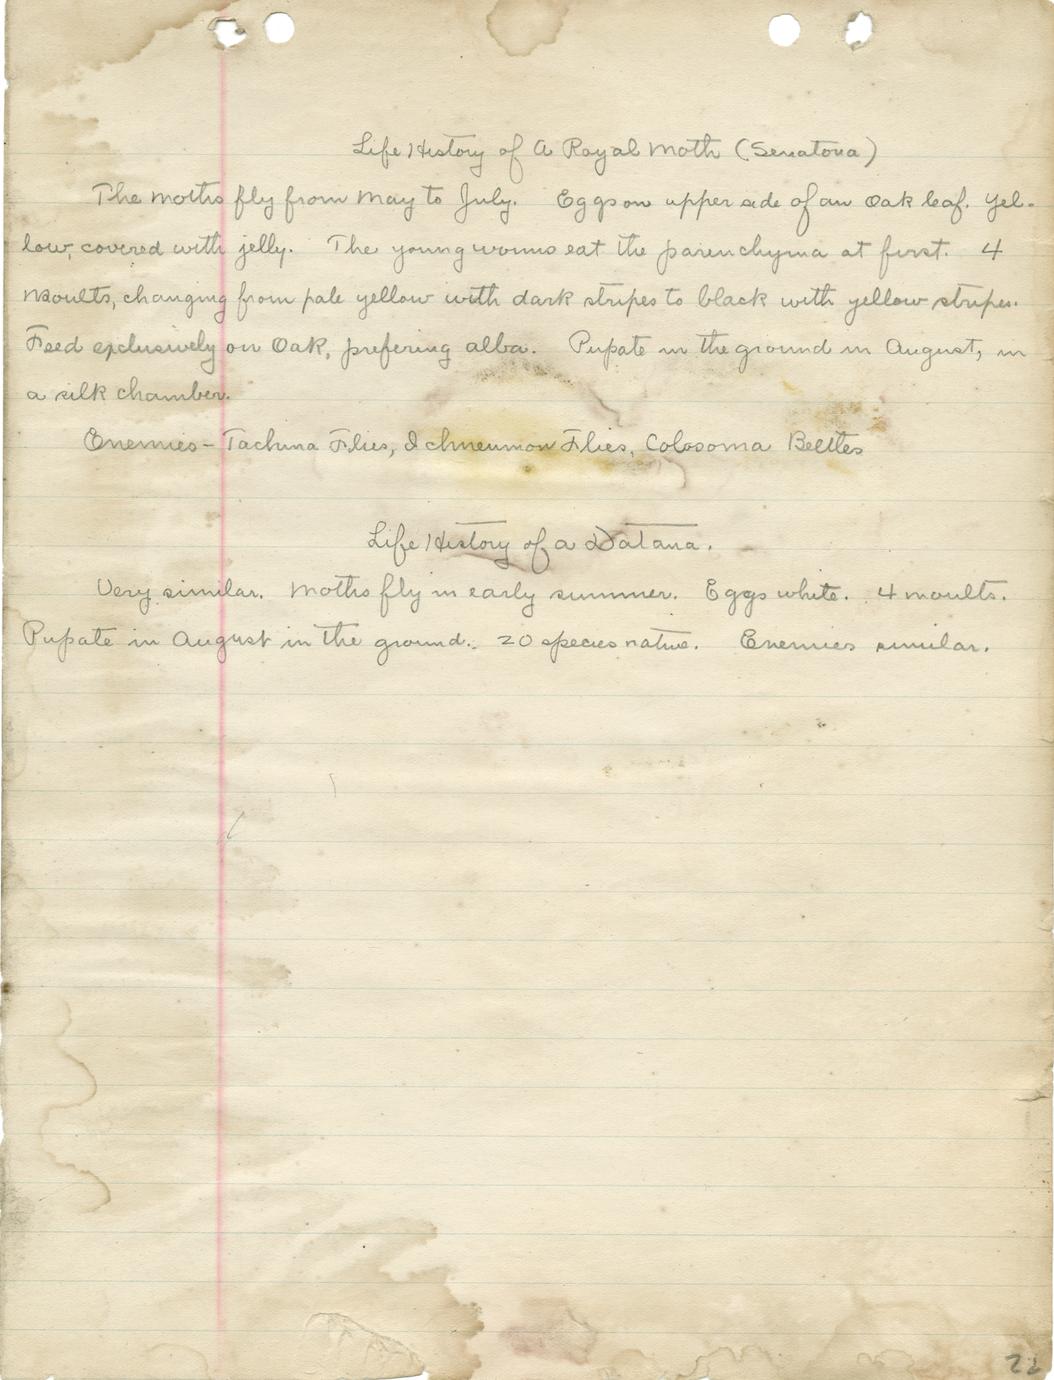 Life History of A Royal Moth (Senatoria)
The moths fly from May to July. Eggs on upper side of an Oak leaf. Yel-
low, covered with jelly. The young worms eat the parenchyma at first. 4
moults, changing from pale yellow with dark stripes to black with yellow stripes.
Feed exclusively on Oak, prefering alba. Pupate in the ground in August, in
a silk chamber.
Enemies - Tachina Flies, Ichneumon Flies, Colosoma Beetles
Life History of a Datana.
Very similar. Moths fly in early summer. Eggs white. 4 moults.
Pupate in August in the ground. 20 species native. Enemies similar.